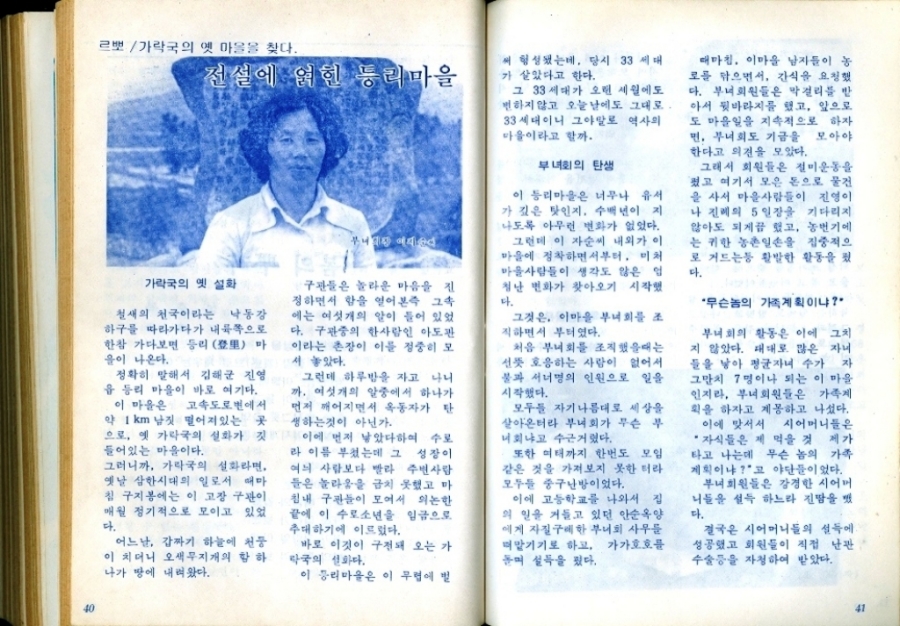 르뽀 /가락국의 옛 마을을 찾다.
전설에 얽힌 등리마을
가락국의 옛 설화
철새의 천국이라는 낙동강
하구를 따라가다가 내륙쪽으로
한참 가다보면 등리(登里) 마
을이 나온다.
정확히 말해서 김해군 진영
읍 등리 마을이 바로 여기다.
이 마을은 고속도로변에서
약 1km 남짓 떨어져있는 곳
으로, 옛 가락국의 설화가 깃
들어있는 마을이다.
그러니까, 가락국의 설화라면,
옛날 삼한시대의 일로서 때마
침 구지봉에는 이 고장 구관이
매월 정기적으로 모이고 있었
다.
어느날, 갑짜기 하늘에 천둥
이 치더니 오색무지개의 함 하
나가 땅에 내려왔다.
구관들은 놀라운 마음을 진
정하면서 함을 열어본즉 그속
에는 여섯개의 알이 들어 있었
다. 구관중의 한사람인 아도판
이라는 촌장이 이를 정중히 모
셔 놓았다.
그런데 하루밤을 자고 나니
까, 여섯개의 알중에서 하나가
먼저 깨어지면서 옥동자가 탄
생하는것이 아닌가.
이에 먼저 낳았다하여 수로
라 이름 부쳤는데 그 성장이
여늬 사람보다 빨라 주변사람
들은 놀라움을 금치 못했고 마
침내 구관들이 모여서 의논한
끝에 이 수로소년을 임금으로
추대하기에 이르렀다.
바로 이것이 구전돼 오는 가
락국의 설화다.
이 등리마을은 이 무렵에 벌
써 형성됐는데, 당시 33 세대
가 살았다고 한다.
그 33세대가 오랜 세월에도
변하지않고 오늘날에도 그대로
33세대이니 그야말로 역사의
마을이라고 할까.
부녀회의 탄생
이 등리마을은 너무나 유서
가 깊은 탓인지, 수백년이 지
나도록 아무런 변화가 없었다.
그런데 이 자순씨 내외가 이
마을에 정착하면서부터, 미처
마을사람들이 생각도 않은 엄
청난 변화가 찾아오기 시작했
다.
그것은, 이마을 부녀회를 조
직하면서 부터였다.
처음 부녀회를 조직했을때는
선뜻 호응하는 사람이 없어서
불과 서너명의 인원으로 일을
시작했다.
모두들 자기나름대로 세상을
살아온터라 부녀회가 무슨 부
녀회냐고 수근거렸다.
또한 여태까지 한번도 모임
같은 것을 가져보지 못한 터라
모두들 중구난방이었다.
이에 고등학교를 나와서 집
의 일을 거들고 있던 안순옥양
에게 자질구레한 부녀회 사무를
떠맡기기로 하고, 가가호호를
돌며 설득을 폈다.
때마침, 이마을 남자들이 농
로를 닦으면서, 간식을 요청했
다. 부녀회원들은 막걸리를 받
아서 뒷바라지를 했고, 앞으로
도 마을일을 지속적으로 하자
면, 부녀회도 기금을 모아야
한다고 의견을 모았다.
그래서 회원들은 절미운동을
폈고 여기서 모은 돈으로 물건
을 사서 마을사람들이 진영이
나 진례의 5일장을 기다리지
않아도 되게끔 했고, 농번기에
는 귀한 농촌일손을 집중적으
로 거드는등 활발한 활동을 폈
다.
"무슨놈의 가족계획이냐?"
부녀회의 활동은 이에 그치
지 않았다. 때대로 많은 자녀
들을 낳아 평균자녀 수가 자
그만치 7명이나 되는 이 마을
인지라, 부녀회원들은 가족계
획을 하자고 계몽하고 나섰다.
이에 맞서서 시어머니들은
"자식들은 제 먹을것 제가
타고 나는데 무슨 놈의 가족
계획이냐?"고 야단들이었다.
부녀회원들은 강경한 시어머
니들을 설득 하느라 진땀을 뺐
다.
결국은 시어머니들의 설득에
성공했고 회원들이 직접 난관
수술등을 자청하여 받았다.
40
41